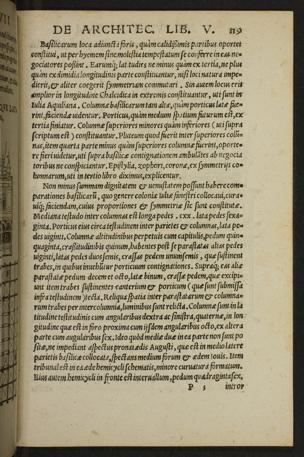 DE ARCHITEC. LIB. V. 119
Basilicarum loca adiuncta foris, quàm calidissimis partibus oportet
constitui, ut per hyemem sine molestia tempestatum se conferre in eas ne
gociatores possint. Earumq́; latitudines ne minus quàm ex tertia, ne plus
quàm ex dimidia longitudinis parte constituantur, nisi loci natura impe
dierit, & aliter coegerit symmetriam commutari. Sin autem locus erit
amplior in longitudine Chalcidica in extremis constituantur, uti sunt in
Iulia Aquiliana. Columnæ basilicarum tam altæ, quàm porticus latæ fue
rint, faciendæ uidentur. Porticus, quàm medium spatium futurum est, ex
tertia finiatur. Columnæ superiores minores quàm inferiores (uti supra
scriptum est) constituantur. Pluteum quod fuerit inter superiores colum
nas, item quarta parte minus quàm superiores columnæ fuerint, oporte
re fieri uidetur, uti supra basilicæ contignationem ambulantes ab negocia
toribus ne conspiciantur. Epistylia, zophori, coronæ, ex symmetrijs co
lumnarum, uti in tertio libro diximus, explicentur.
Non minus summam dignitatem & uenustatem possunt habere com
parationes basilicarũ, quo genere coloniæ Iuliæ fanestri collocaui, cura
uiq́; faciendam, cuius proportiones & symmetriæ sic sunt constitutæ.
Mediana testudo inter columnas est longa pedes .cxx. lata pedes sexa
ginta. Porticus eius circa testudinem inter parietes & columnas, lata pe
des uiginti. Columnæ altitudinibus perpetuis cum capitulis, pedum quin
quaginta, crassitudinibus quinum, habentes post se parastatas altas pedes
uiginti, latas pedes duos semis, crassas pedem unum semis, quæ sustinent
trabes, in quibus inuehuntur porticuum contignationes. Supraq́; eas aliæ
parastatæ pedum decem et octo, latæ binum, crassæ pedem, quæ excipi
unt item trabes sustinentes cantherium & porticum (quæ sunt submissa
infra testudinem) tecta. Reliqua spatia inter parastatarum & columna-
rum trabes per intercolumnia, luminibus sunt relicta. Columnæ sunt in la
titudine testudinis cum angularibus dextra ac sinistra, quaternæ, in lon
gitudine quæ est in foro proxima cum ijsdem angularibus octo, ex altera
parte cum angularibus sex. Ideo quòd mediæ duæ in ea parte non sunt po
sitæ, ne impediant aspectus pronai ædis Augusti, quæ est in medio latere
parietis basilicæ collocata, spectans medium forum & ædem Iouis. Item
tribunal est in ea æde hemicycli schematis, minore curuatura formatum.
Eius autem hemicycli in fronte est interuallum, pedum quadragintasex,
P 3 intror